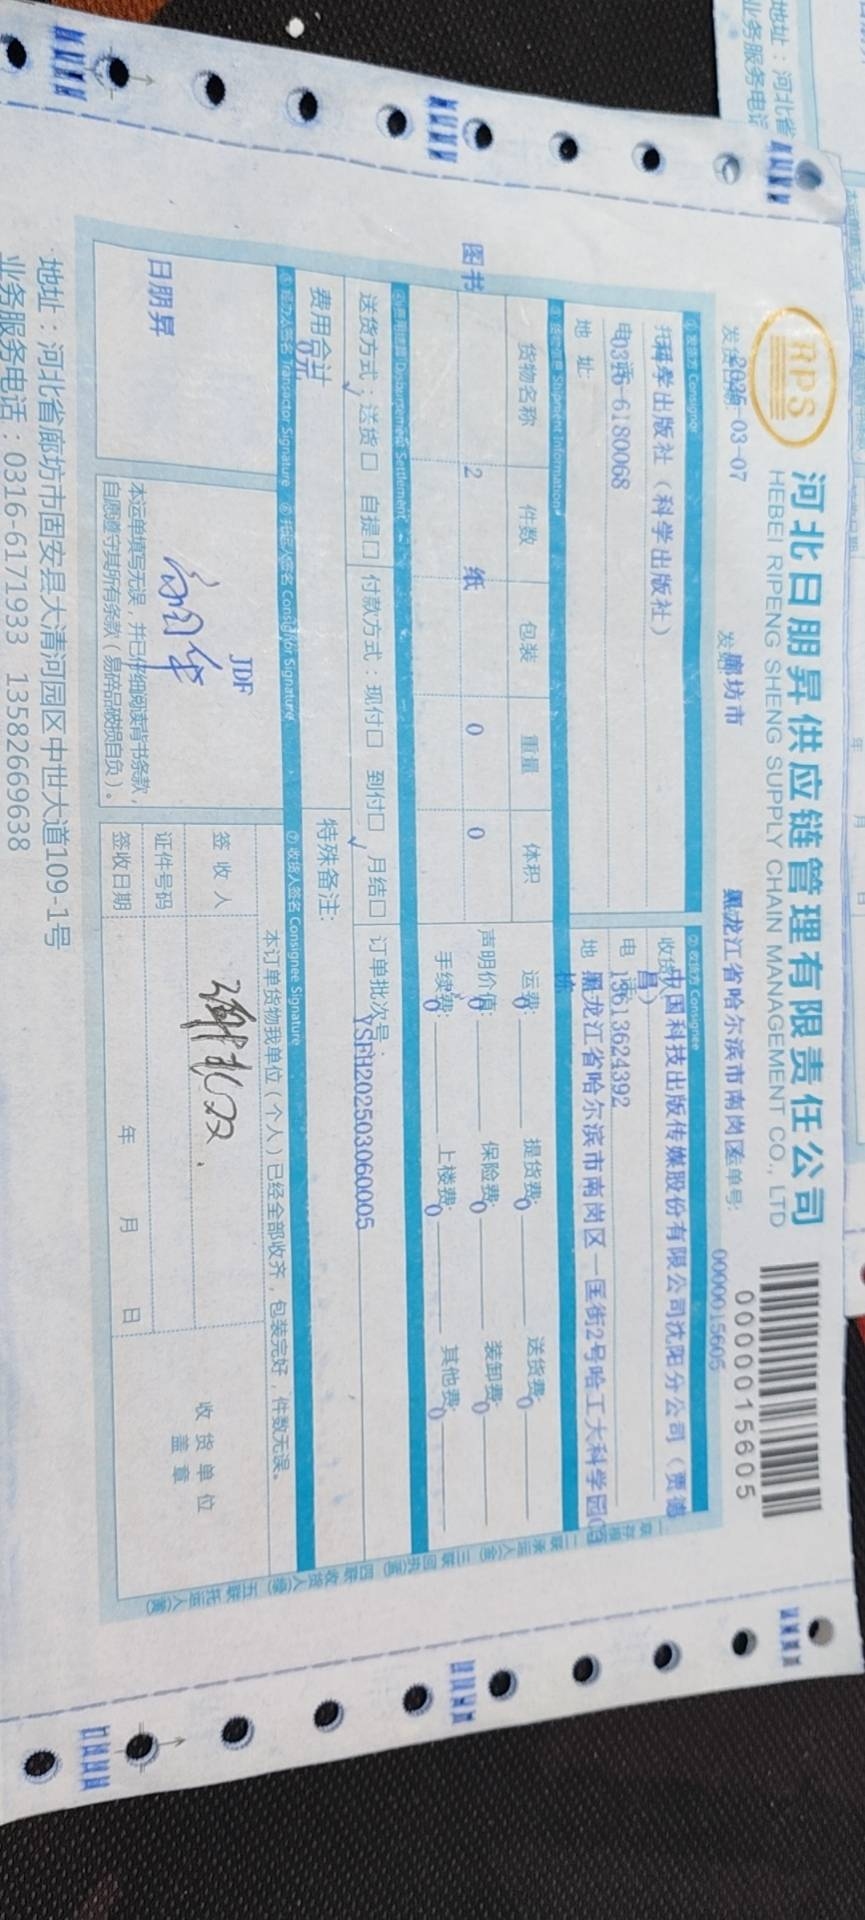 RPS
河北日朋昇供应链管理有限责任公司
HEBEI RIPENG SHENG SUPPLY CHAIN MANAGEMENT CO., LTD
0000015605
2025-03-07
廊坊市
黑龙江省哈尔滨市南岗区
运单号:
0000015605
① 发货方 Consignor
② 收货方 Consignee
科学出版社（科学出版社）
中国科技出版传媒股份有限公司沈阳分公司（贾德昌）
0316-6180068
13613624392
地 址:
黑龙江省哈尔滨市南岗区一匡街2号哈工大科学园
栋
③ 货物信息 Shipment Information
货物名称 件数 包装 重量 体积
图书 2 纸 0 0
运费: 0 提货费: 0 送货费: 0
声明价值: 0 保险费: 0 装卸费: 0
手续费: 0 上楼费: 0 其他费: 0
④ 费用结算 Disbursement Settlement
送货方式：送货□ 自提□ 付款方式：现付□ 到付□ 月结□ 订单批次号:
YSFH202503060005
费用合计
0元
特殊备注:
⑤ 经办人签名 Transactor Signature ⑥ 托运人签名 Consignor Signature ⑦ 收货人签名 Consignee Signature
日朋昇
JDF
本运单填写无误，并已仔细阅读背书条款，
自愿遵守其所有条款（易碎品破损自负）。
本订单货物我单位（个人）已经全部收齐，包装完好，件数无误。
签 收 人
证件号码
签收日期 年 月 日
收货单位
盖章
地址：河北省廊坊市固安县大清河园区中世大道109-1号
业务服务电话：0316-6171933 13582669638
地址：河北省
业务服务电话
年 月 日